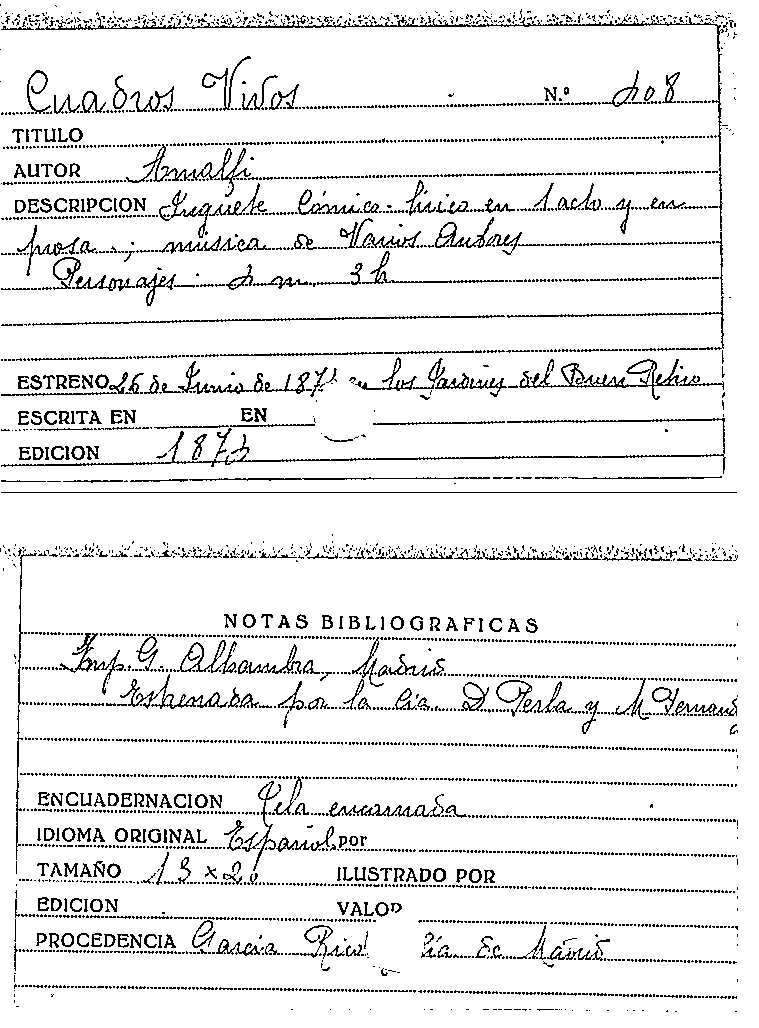 Cuadros Vivos Nº 408
TITULO
AUTOR Amalfi
DESCRIPCION Juguete Cómico-lírico en 1 acto y en
prosa.; música de Varios Autores
Personajes: 4 m. 3 h
ESTRENO 26 de Junio de 187 en los Jardines del Buen Retiro
ESCRITA EN EN
EDICION 1874
NOTAS BIBLIOGRAFICAS
Imp. G. Alhambra, Madrid
Estrenada por la cía. D Perla y M Fernand
ENCUADERNACION Tela encarnada
IDIOMA ORIGINAL Español por
TAMAÑO 13 x 20 ILUSTRADO POR
EDICION VALOR
PROCEDENCIA García Rico Cía de Madrid